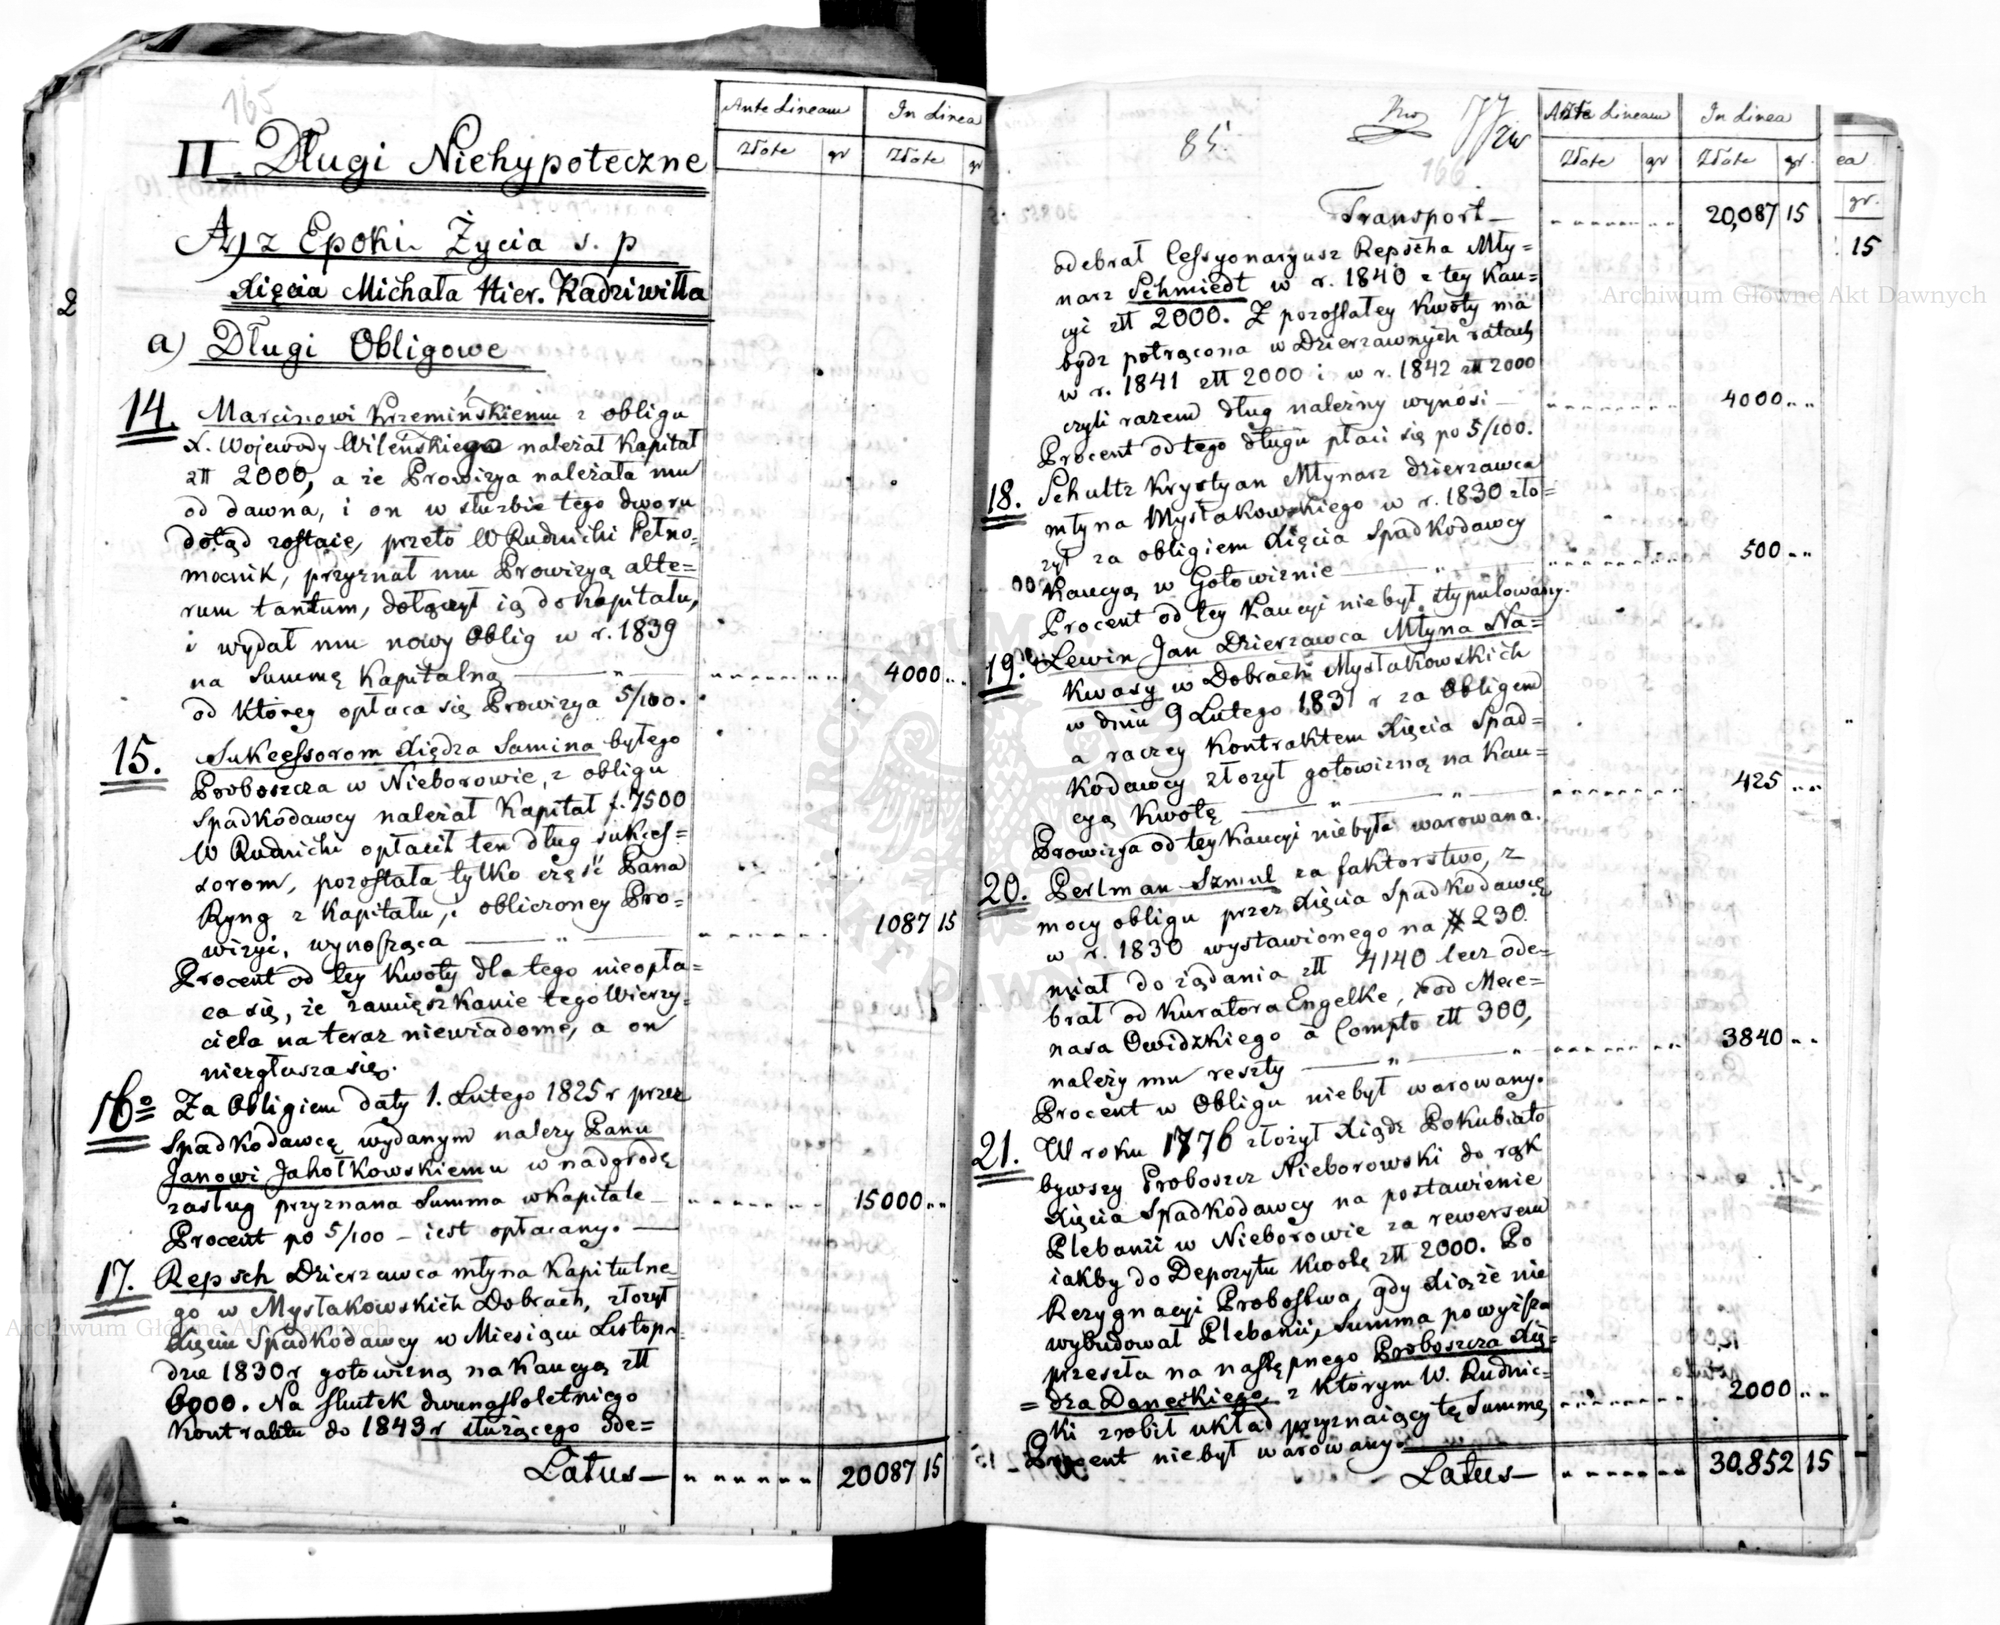 165
Ante Lineam In Linea
Złote gr Złote gr
II. Długi Niehypoteczne
A) z Epoki Życia s. p
Xięcia Michała Hier. Radziwiłła
a) Długi Obligowe
14. Marcinowi Krzemińskiemu z obligu
X. Wojewody Wileńskiego należał Kapitał
złł 2000, a że Prowizya należała mu
od dawna, i on w służbie tego dworu
dotąd zostaie, przeto W Rudnicki Pełno=
mocnik, przyznał mu Prowizyą alte=
rum tantum, dołączył ią do Kapitału,
i wydał mu nowy Oblig w r. 1839
na Summę Kapitalną — " — 4000 „
od którey opłaca się Prowizya 5/100.
15. Sukcessorom Xiędza Samina byłego
Proboszcza w Nieborowie, z obligu
Spadkodawcy należał Kapitał f. 7500
W Rudnicki opłacił ten dług sukces=
sorom, pozostała tylko część Pana
Ryng z Kapitału, i obliczoney Pro=
wizyi, wynosząca — " — 1087 15
Procent od tey Kwoty dla tego nieopła=
ca się, że zamięszkanie tego Wierzy=
ciela na teraz niewiadome, a on
niezgłasza się.
16o Za Obligiem daty 1. Lutego 1825 r przez
Spadkodawcę wydanym należy Panu
Janowi Jahołkowskiemu w nadgrodę
zasług przyznana Summa w Kapitale — 15000 „
Procent po 5/100 — iest opłacany. —
17. Repsch Dzierzawca młyna Kapitulne
go w Mysłakowskich Dobrach, złożył
Xięciu Spadkodawcy w Miesiącu Listopa=
dzie 1830 r gotowizną na Kaucyą złł
6000. Na skutek dwunastoletniego
Kontraktu do 1843 r służącego Ode=
Latus — 20087 15
85. 166
Ante Lineam In Linea
Złote gr Złote gr.
Transport — 20,087 15
odebrał Cessyonaryusz Repscha Mły=
narz Schmiedt w r. 1840 z tey Kau=
cyi złł 2000. Z pozostałey Kwoty ma
bydz potrącona w Dzierzawnych ratach
w r. 1841 złł 2000 i w r. 1842 złł 2000
czyli razem dług należny wynosi — 4000 „
Procent od tego długu płaci się po 5/100.
18. Schultz Krystyan Młynarz dzierzawca
młyna Mysłakowskiego w r. 1830 zło=
żył za obligiem Xięcia Spadkodawcy
Kaucyą w Gotowiznie — " — 500 „
Procent od tey Kaucyi niebył stypulowany.
19. Lewin Jan Dzierzawca Młyna Na=
Kwasy w Dobrach Mysłakowskich
w dniu 9 Lutego 1831 r za Obligem
a raczey Kontraktem Xięcia Spad=
kodawcy złożył gotowizną na Kau=
cyą Kwotę — " — " — 425 „
Prowizya od tey Kaucyi niebyła warowana.
20. Perlman Szmul za faktorstwo, z
mocy obligu przez Xięcia Spadkodawcę
w r. 1830 wystawionego na # 230.
miał do żądania złł 4140 lecz ode=
brał od Kuratora Engelke, i od Mece=
nasa Owidzkiego à Compto złł 300,
należy mu reszty — " — " 3840 „
Procent w Obligu niebył warowany.
21. W roku 1776 złożył Xiądz Pokubiało
bywszy Proboszcz Nieborowski do rąk
Xięcia Spadkodawcy na postawienie
Plebanii w Nieborowie za rewersem
iakby do Depozytu Kwotę złł 2000. Po
Rezygnacyi Probostwa, gdy Xiąże nie
wybudował Plebanii, Summa powyższa
przeszła na następnego Proboszcza Xię=
= dza Daneckiego, z którym W. Rudnic=
ki zrobił układ przyznaiący tę Summę 2000 „
Procent niebył warowany.
Latus — 30,852 15
ea
gr.
15
Archiwum Główne Akt Dawnych
Archiwum Główne Akt Dawnych
ARCHIWUM GŁÓWNE AKT DAWNYCH